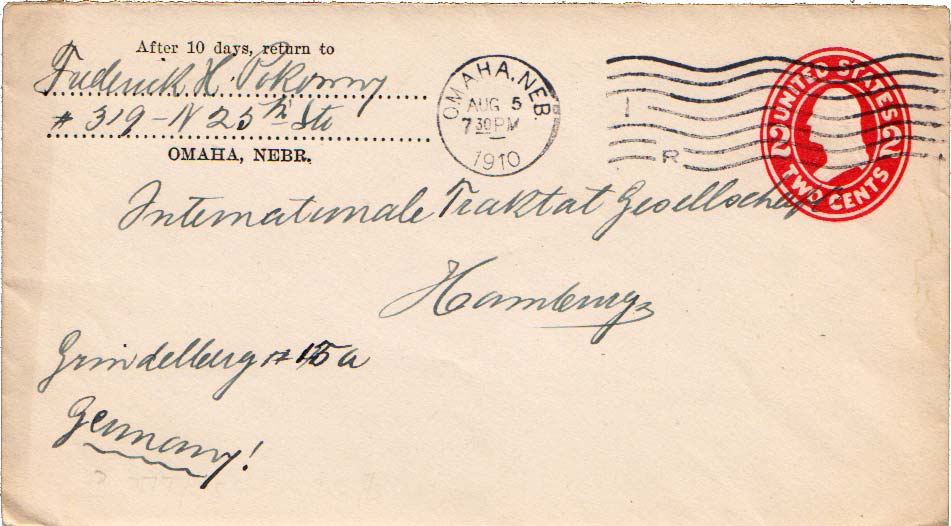 After 10 days, return to
Frederick H. Pokorny
# 319 - N 25th Str
OMAHA, NEBR.
OMAHA, NEB.
AUG 5
7 30 PM
1910
I
R
UNITED STATES
2 2
TWO CENTS
Internationale Traktat Gesellschaft
Hamburg
Grindelberg # 15a
Germany!